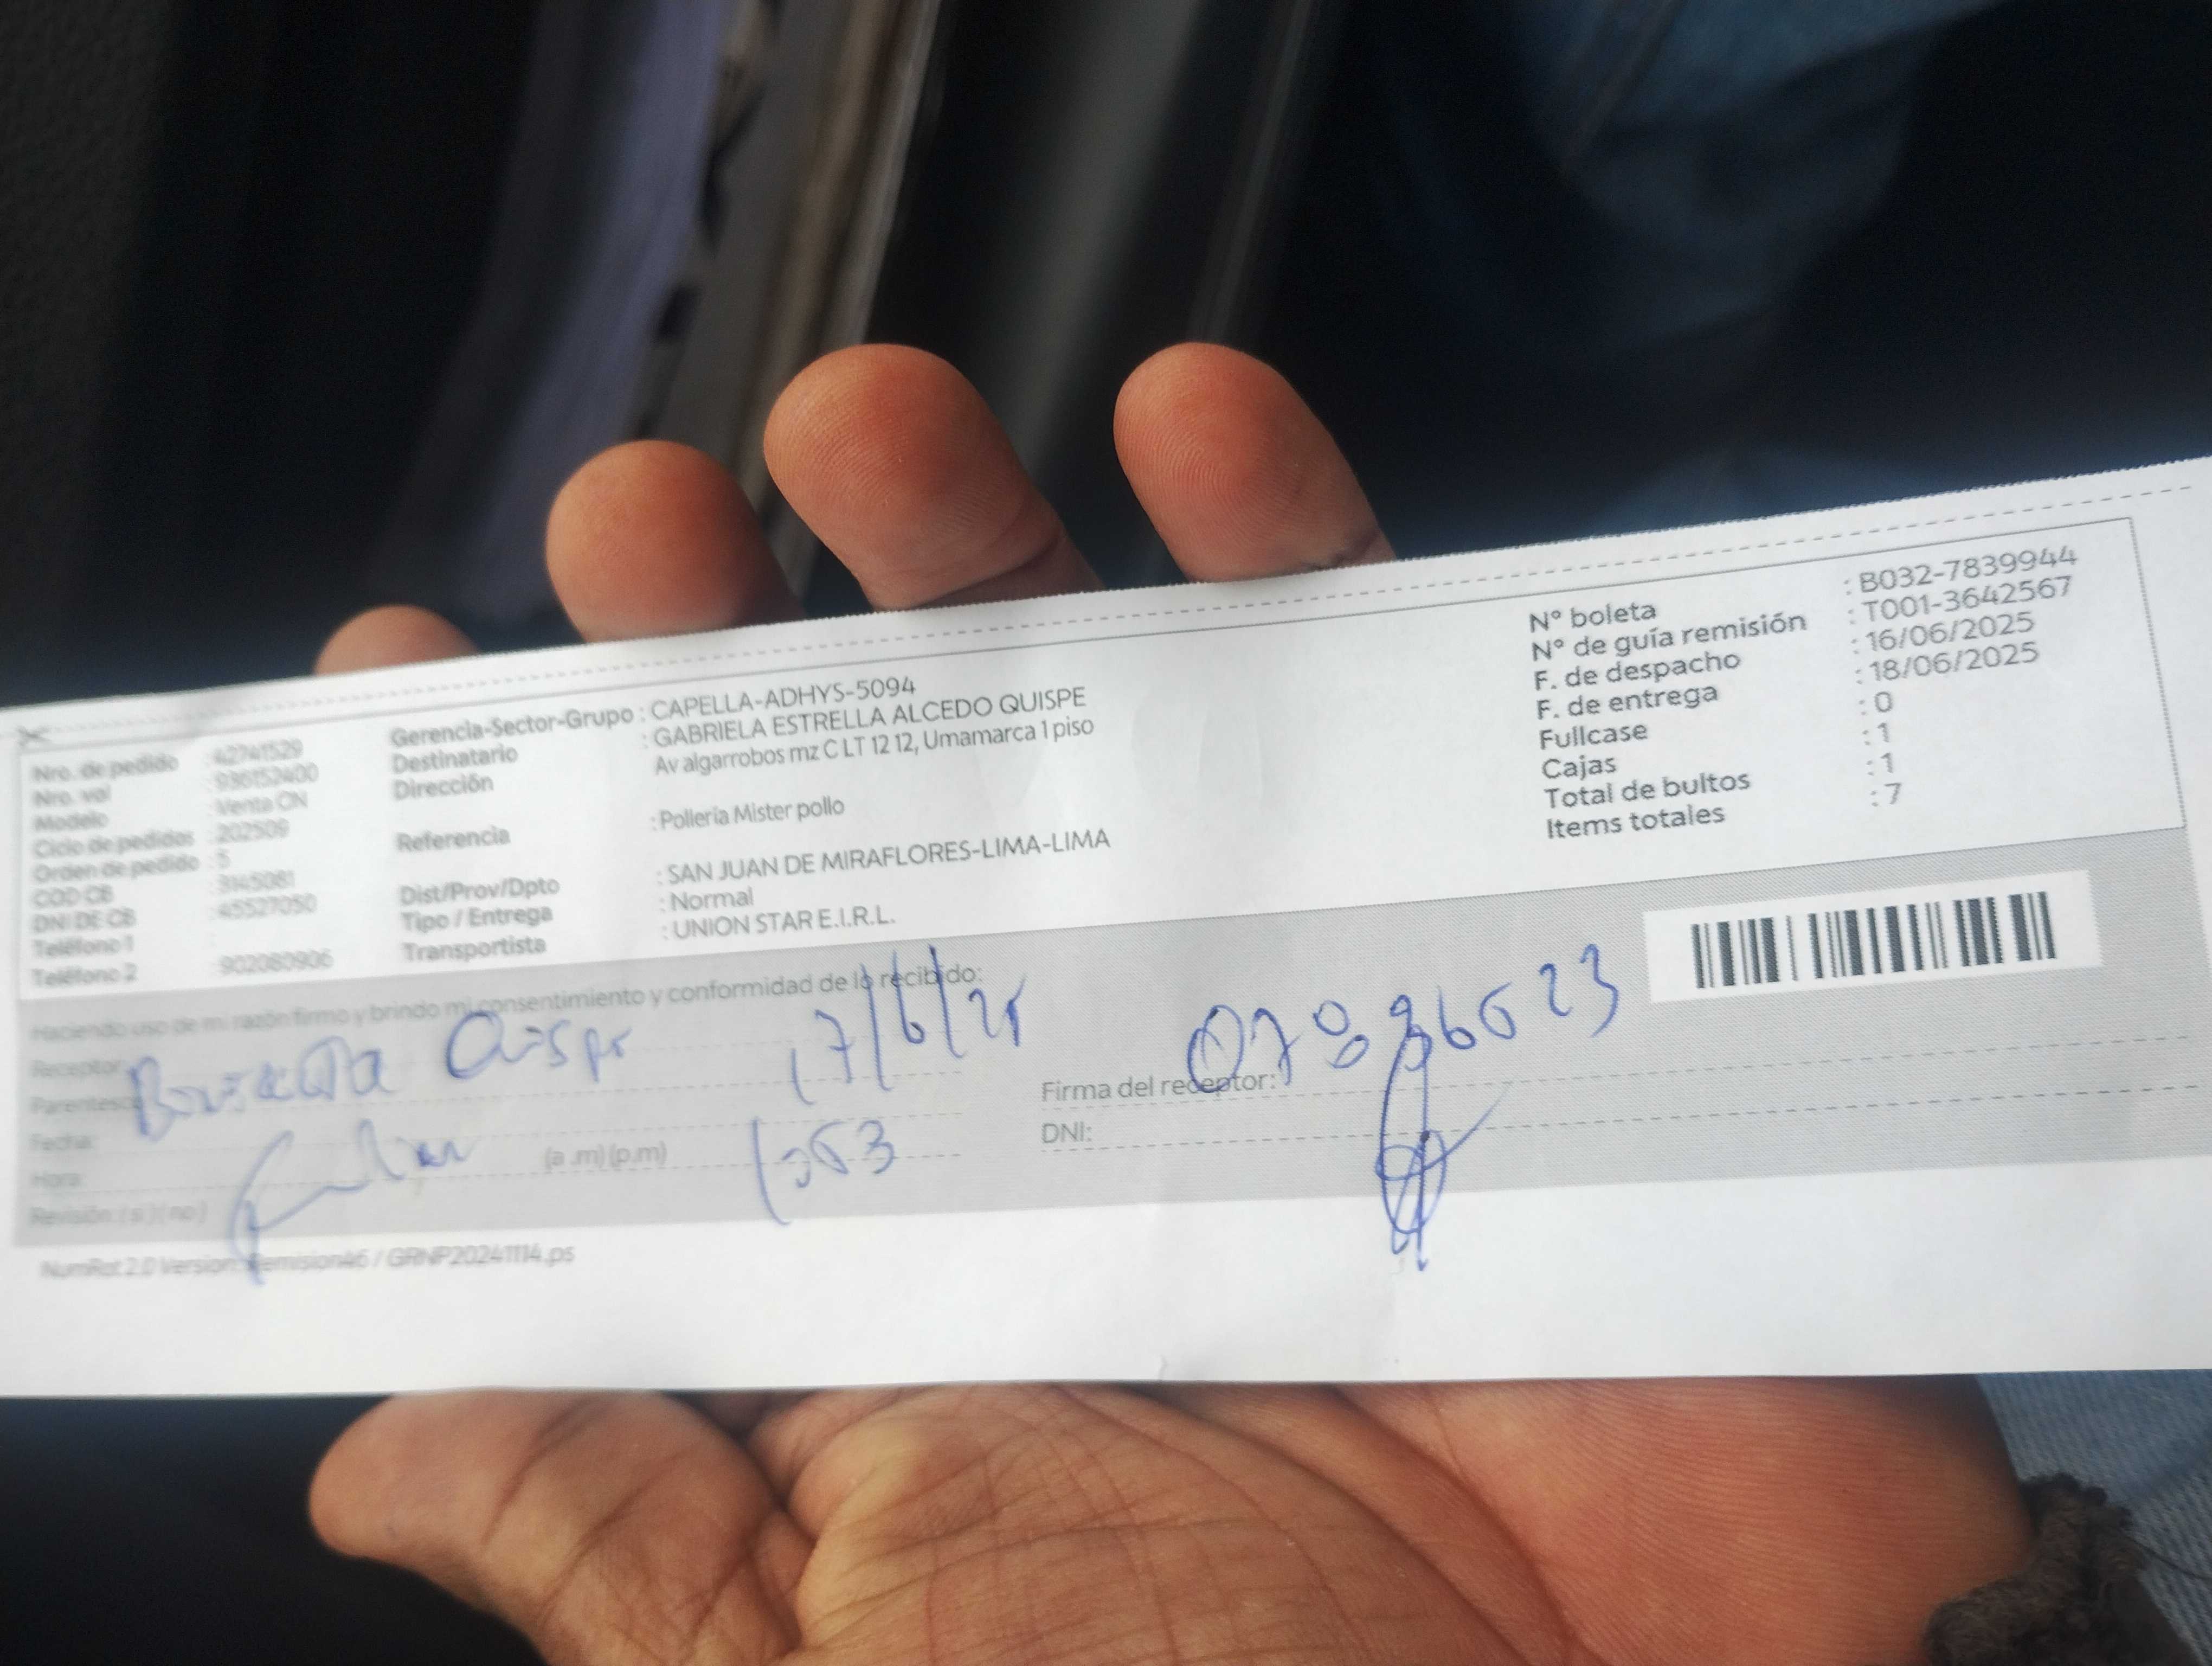 Nro. de pedido : 42741529
Nro. vol : 936152400
Modelo : Venta CN
Ciclo de pedidos : 202509
Orden de pedido : 5
COD CB : 3145081
DNI DE CB : 45527050
Teléfono 1 :
Teléfono 2 : 902080906
Gerencia-Sector-Grupo : CAPELLA-ADHYS-5094
Destinatario : GABRIELA ESTRELLA ALCEDO QUISPE
Dirección Av algarrobos mz C LT 12 12, Umamarca 1 piso
Referencia : Polleria Mister pollo
Dist/Prov/Dpto : SAN JUAN DE MIRAFLORES-LIMA-LIMA
Tipo / Entrega : Normal
Transportista : UNION STAR E.I.R.L.
N° boleta : B032-7839944
N° de guía remisión : T001-3642567
F. de despacho : 16/06/2025
F. de entrega : 18/06/2025
Fullcase : 0
Cajas : 1
Total de bultos : 1
Items totales : 7
Haciendo uso de mi razón firmo y brindo mi consentimiento y conformidad de lo recibido:
Receptor:
Parentesco:
Fecha: 17/6/25
Hora: (a .m) (p.m)
Revisión: ( si ) ( no )
Firma del receptor:
DNI:
NumRot 2.0 Version: Remision46 / GRNP20241114.ps